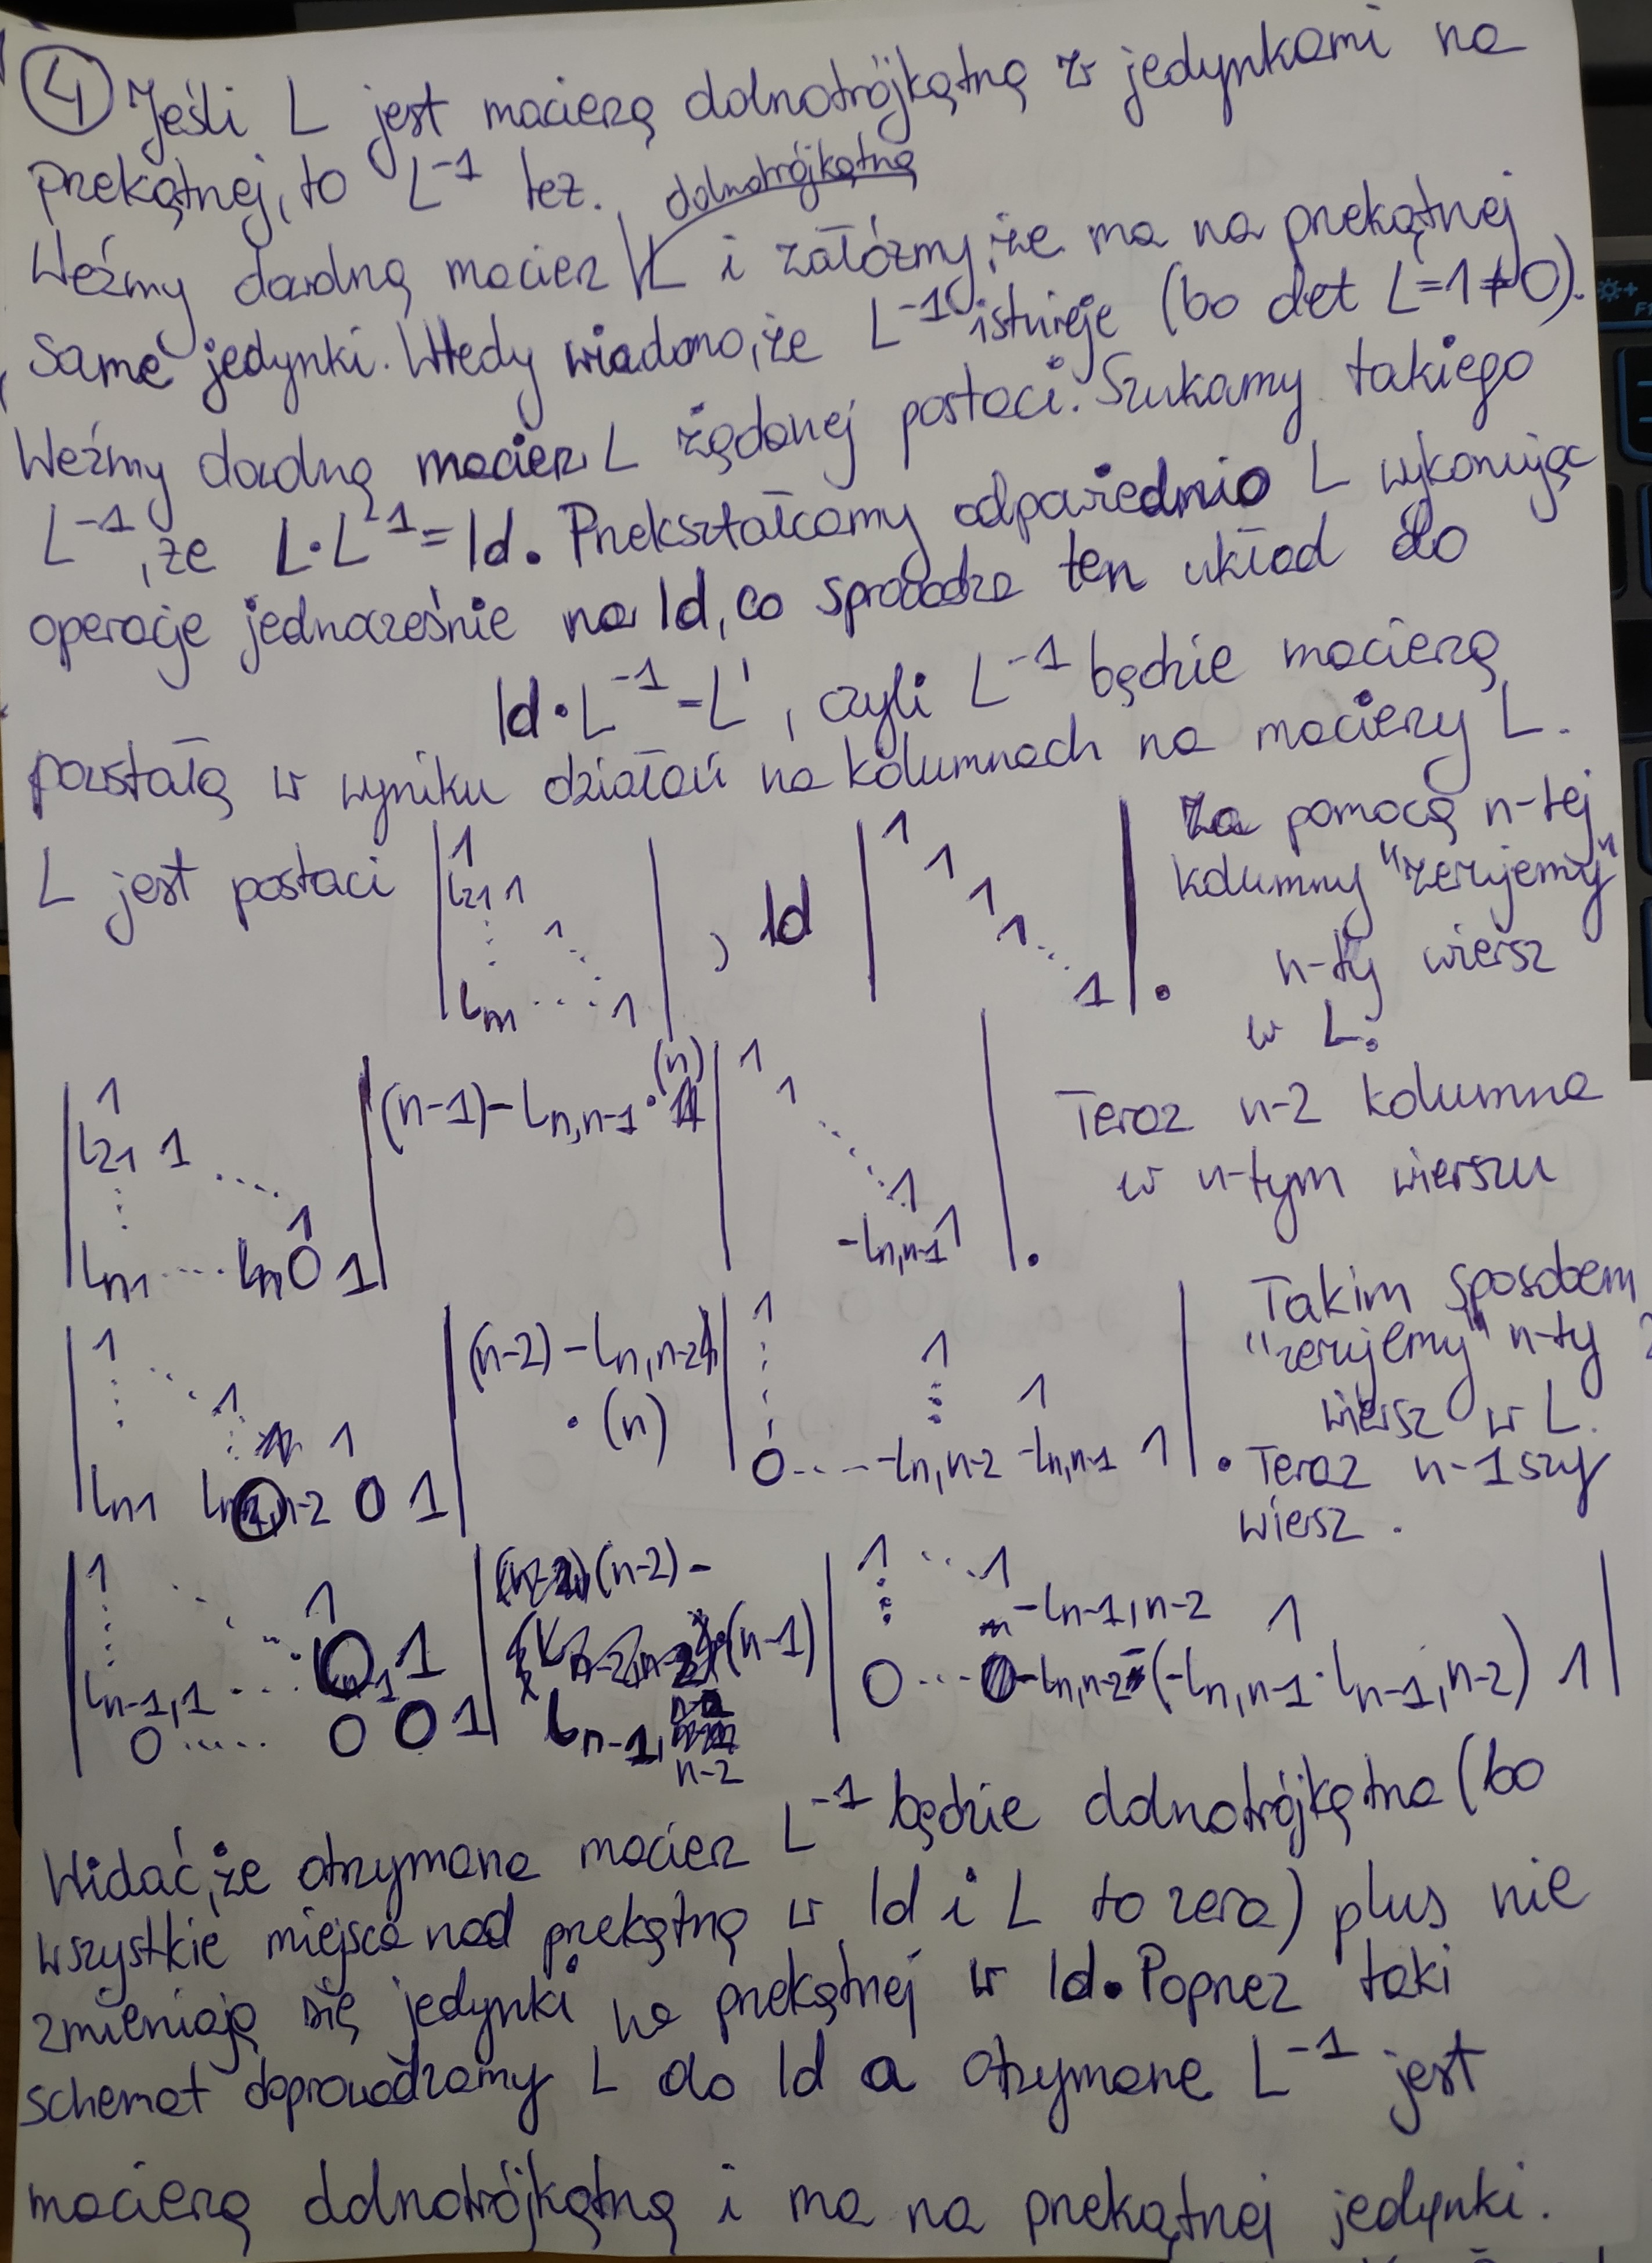 ④ Jeśli L jest macierzą dolnotrójkątną z jedynkami na
przekątnej, to L⁻¹ też.
dolnotrójkątną
Weźmy dowolną macierz L i załóżmy, że ma na przekątnej
same jedynki. Wtedy wiadomo, że L⁻¹ istnieje (bo det L=1≠0).
Weźmy dowolną macierz L żądanej postaci. Szukamy takiego
L⁻¹, że L·L⁻¹=Id. Przekształcamy odpowiednio L wykonując
operacje jednocześnie na Id, co sprowadza ten układ do
Id·L⁻¹=L', czyli L⁻¹ będzie macierzą
powstałą w wyniku działań na kolumnach na macierzy L.
L jest postaci | 1 | , Id | 1 | .
l21 1
1 1 1
ln1 ... 1
1
Za pomocą n-tej
kolumny "zerujemy"
n-ty wiersz
w L.
| 1 | (n-1)-ln,n-1·(n) | 1 |
l21 1 ... 1
1 1
ln1 ... ln 0 1 -ln,n-1 1 .
Teraz n-2 kolumna
w n-tym wierszu
| 1 | (n-2)-ln,n-2 | 1 |
1 · (n) 1
1 1
ln1 0 0 1 0 ... -ln,n-2 -ln,n-1 1 .
Takim sposobem
"zerujemy" n-ty
wiersz w L.
Teraz n-1szy
wiersz.
| 1 | (n-2)- | 1 ... 1 |
1 (n-1) -ln-1,n-2 1
ln-1,1 ... 0 1 ln-1,n-2 0 ... -ln,n-2-(-ln,n-1·ln-1,n-2) 1
0 ... 0 0 1
Widać, że otrzymana macierz L⁻¹ będzie dolnotrójkątna (bo
wszystkie miejsca nad przekątną w Id i L to zera) plus nie
zmieniają się jedynki na przekątnej w Id. Poprzez taki
schemat doprowadzamy L do Id a otrzymane L⁻¹ jest
macierzą dolnotrójkątną i ma na przekątnej jedynki.